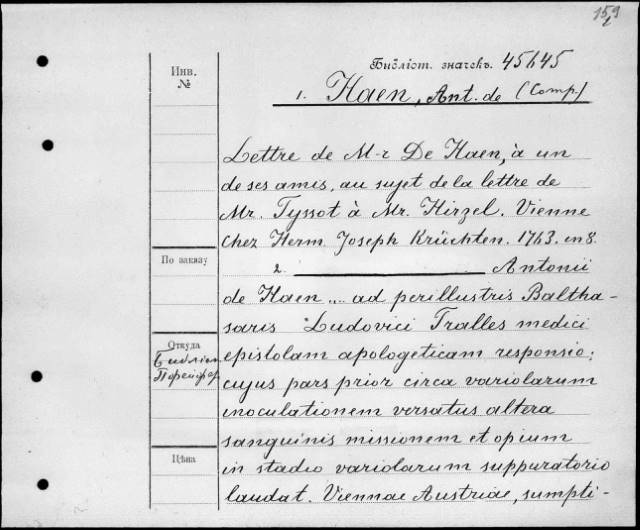 159
Инв.
№
Библіот. значекъ. 45645
1. Haen, Ant. de (Comp.)
Lettre de M-r De Haen, à un
de ses amis, au sujet de la lettre de
Mr. Tyssot à Mr. Hirzel. Vienne
chez Herm. Joseph Krüchten. 1763. in 8.
По заказу
2. Antonii
de Haen .... ad perillustris Baltha-
saris Ludovici Tralles medici
Откуда
epistolam apologeticam responsio;
cujus pars prior circa variolarum
inoculationem versatus altera
sanguinis missionem et opium
Цѣна
in stadio variolarum suppuratorio
laudat. Viennae Austriae, sumpti-